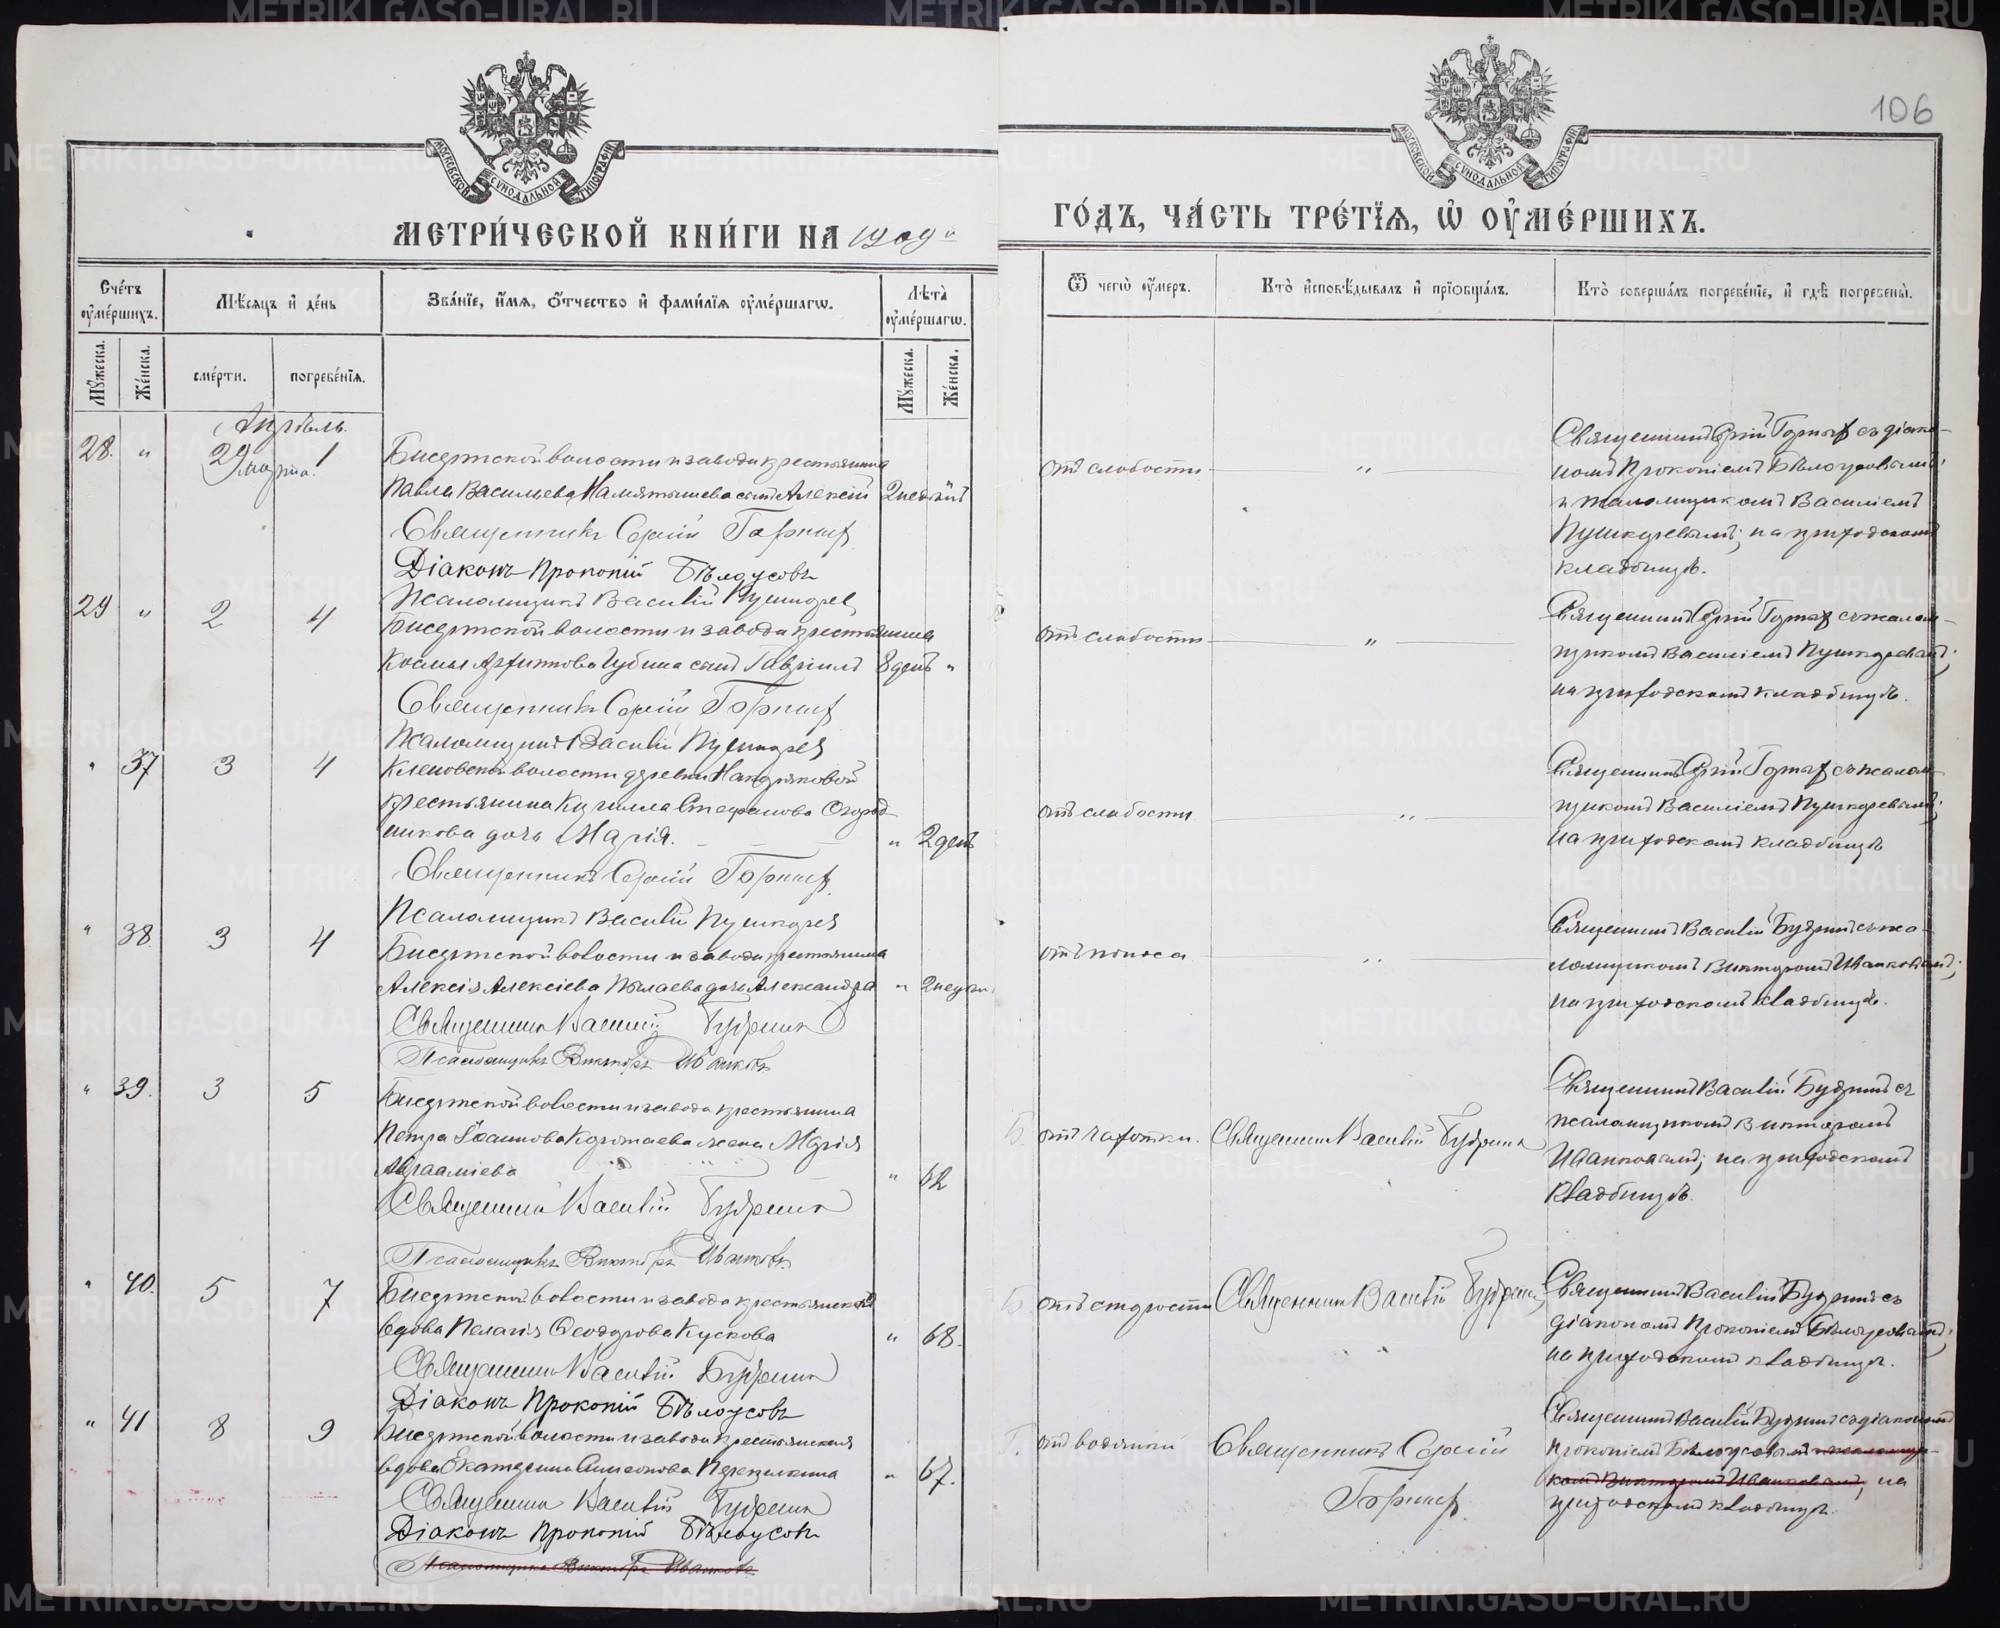 106
МОСКОВСКОЙ СѴНОДАЛЬНОЙ ТИПОГРАФІИ
МОСКОВСКОЙ СѴНОДАЛЬНОЙ ТИПОГРАФІИ
МЕТРИ́ЧЕСКОЙ КНИ́ГИ НА 1909 й
ГО́ДЪ, ЧА́СТЬ ТРЕ́ТЇѦ, Ѡ҆ ОУ҆МЕ́РШИХЪ.
Сче́тъ оу҆ме́ршихъ.
Мѣ́сяцъ и҆ де́нь
Зва́нїе, и҆́мѧ, ѻ҆́тчество и҆ фами́лїѧ оу҆ме́ршагѡ.
Лѣ́та оу҆ме́ршагѡ.
Ѿ чегѡ̀ оу҆́меръ.
Кто̀ и҆сповѣ́дывалъ и҆ прїѡбща́лъ.
Кто̀ соверша́лъ погребе́нїе, и҆ гдѣ̀ погребены̀.
Мꙋ́жеска.
Же́нска.
сме́рти.
погребе́нїѧ.
Мꙋ́жеска.
Же́нска.
Апрѣль.
28. " 29 марта. 1
Бисертской волости и завода крестьянина
Павла Васильева Мамятышева сынъ Алексій 2 недѣли
Священникъ Сергій Горных
Діаконъ Прокопій Бѣлоусовъ
Псаломщикъ Василій Пушкарев
отъ слабости
"
Священник Сергій Горных съ діако-
номъ Прокопіемъ Бѣлоусовымъ
и псаломщикомъ Василіемъ
Пушкаревымъ; на приходскомъ
кладбищѣ.
29 " 2 4
Бисертской волости и завода крестьянина
Космы Архиппова Губина сынъ Гавріилъ 8 дней "
Священникъ Сергій Горных
Псаломщикъ Василій Пушкарев
отъ слабости
"
Священник Сергій Горных съ псалом-
щикомъ Василіемъ Пушкаревымъ;
на приходскомъ кладбищѣ.
" 37 3 4
Кленовской волости деревни
крестьянина Кирилла Стефанова Огород-
никова дочь Марія. " 2 дней
Священникъ Сергій Горных
Псаломщикъ Василій Пушкарев
отъ слабости
"
Священникъ Сергій Горных съ псалом-
щикомъ Василіемъ Пушкаревымъ;
на приходскомъ кладбищѣ
" 38 3 4
Бисертской волости и завода крестьянина
Алексія Алексіева Пылаева дочь Александра " 2 недѣли
Священник Василій Будрин
Псаломщикъ Викторъ Иванковъ
отъ поноса
"
Священникъ Василій Будринъ съ пса-
ломщикомъ Викторомъ Иванковымъ;
на приходскомъ кладбищѣ.
" 39. 3 5
Бисертской волости и завода крестьянина
Петра Іоаннова жена Марія
Авраамiева " 62
Священник Василій Будрин
Псаломщикъ Викторъ Иванковъ
Б. отъ чахотки.
Священник Василій Будрин
Священникъ Василій Будринъ съ
псаломщикомъ Викторомъ
Иванковымъ; на приходскомъ
кладбищѣ.
" 40. 5 7
Бисертской волости и завода крестьянская
вдова Пелагія Ѳеодорова Кускова " 68.
Священник Василій Будрин
Діаконъ Прокопій Бѣлоусовъ
Б. отъ старости
Священник Василій Будрин
Священникъ Василій Будринъ съ
діакономъ Прокопіемъ Бѣлоусовымъ;
на приходскомъ кладбищѣ.
" 41 8 9
Бисертской волости и завода крестьянская
вдова Екатерина Симеонова " 67.
Священник Василій Будрин
Діаконъ Прокопій Бѣлоусовъ
Псаломщикъ Викторъ Иванковъ
Г. отъ водянки
Священникъ Сергій
Горных
Священникъ Василій Будринъ съ діакономъ
Прокопіемъ Бѣлоусовымъ и псаломщи-
комъ Викторомъ Иванковымъ; на
приходскомъ кладбищѣ.
METRIKI.GASO-URAL.RU